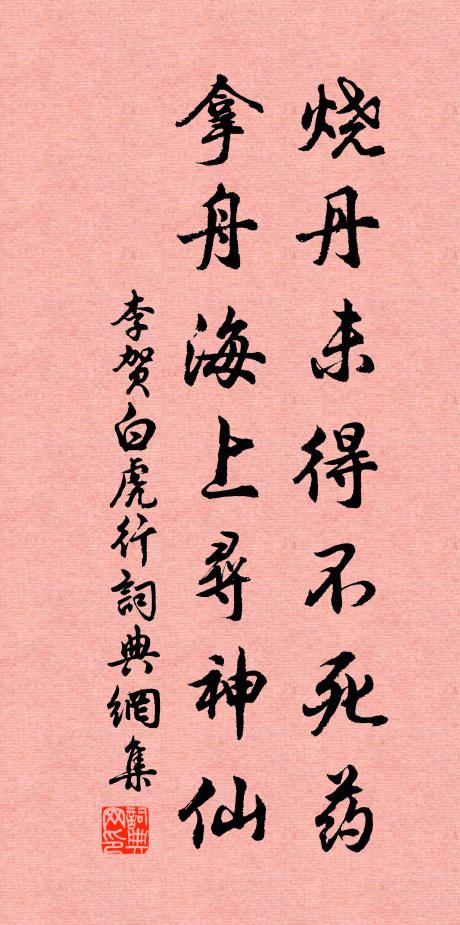 烧丹未得不死药
拿舟海上寻神仙
李贺白虎行词典網集
詞典
网印